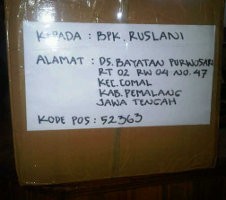 KEPADA : BPK. RUSLANI
ALAMAT : DS. BAYATAN PURWOSARI
RT 02 RW 04 NO. 47
KEC. COMAL
KAB. PEMALANG
JAWA TENGAH
KODE POS : 52363